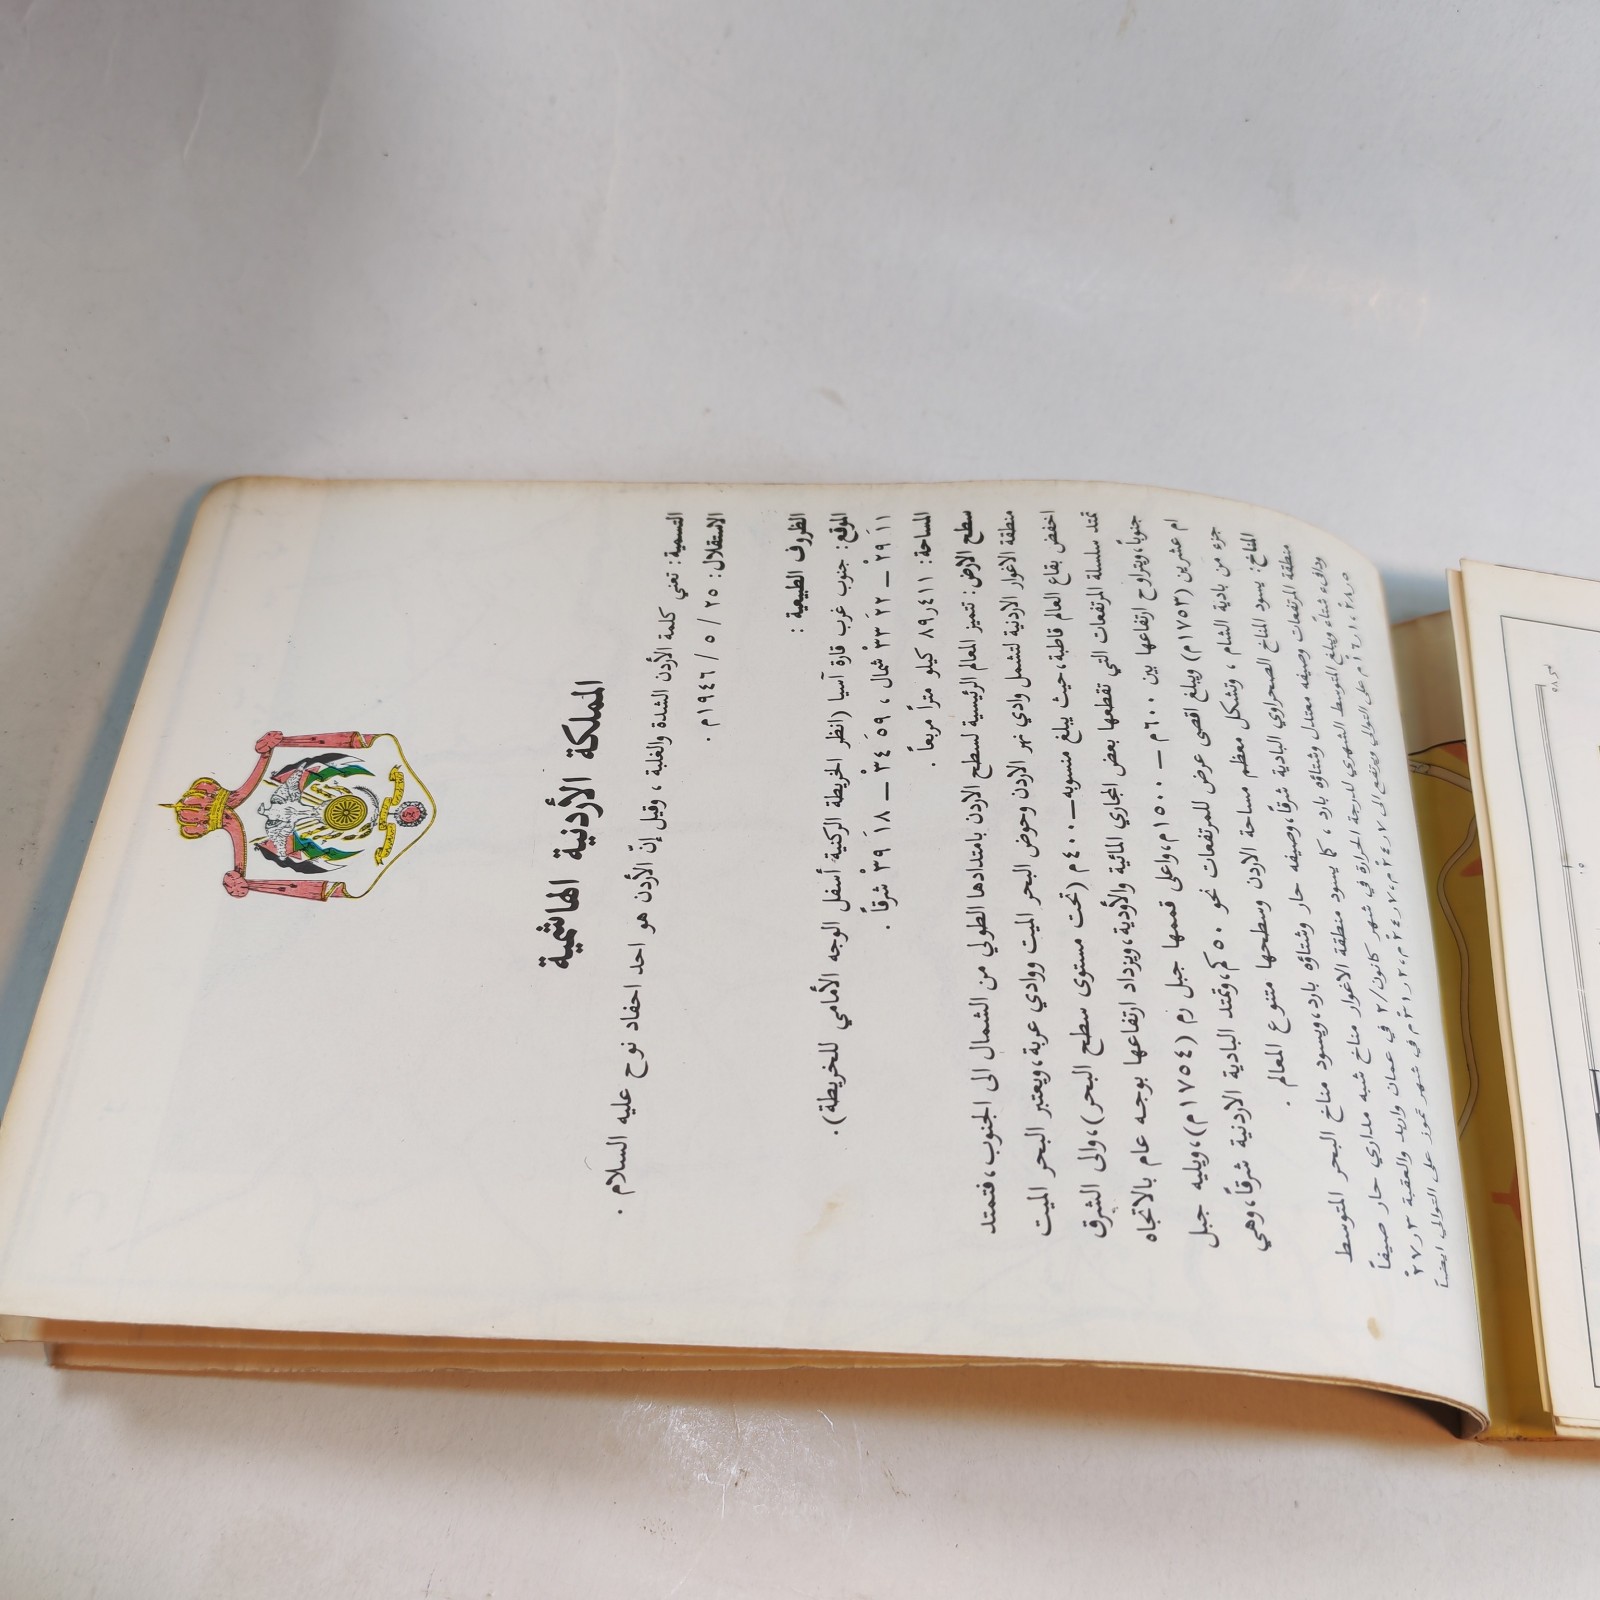 المملكة الأردنية الهاشمية
التسمية: تعني كلمة الأردن الشدة والغلبة، وقيل إنّ الأردن هو احد احفاد نوح عليه السلام.
الاستقلال: ٢٥ / ٥ / ١٩٤٦م.
الظروف الطبيعية:
الموقع: جنوب غرب قارة آسيا (انظر الخريطة الركنية أسفل الوجه الأمامي للخريطة).
١١ َ ٢٩ ْ ــ ٢٢ َ ٣٣ ْ شمال، ٥٩ َ ٣٤ ْ ــ ١٨ َ ٣٩ ْ شرقاً.
المساحة: ٨٩٫٤١١ كيلو متراً مربعاً.
سطح الارض: تتميز المعالم الرئيسية لسطح الاردن بامتدادها الطولي من الشمال الى الجنوب، فتمتد
منطقة الاغوار الاردنية لتشمل وادي نهر الاردن وحوض البحر الميت ووادي عربة، ويعتبر البحر الميت
اخفض بقاع العالم قاطبة، حيث يبلغ منسوبه ــ ٤٠٠م (تحت مستوى سطح البحر)، والى الشرق
تمتد سلسلة المرتفعات التي تقطعها بعض المجاري المائية والأودية، ويزداد ارتفاعها بوجه عام بالاتجاه
جنوباً، ويتراوح ارتفاعها بين ٦٠٠م ــ ١٥٠٠م، واعلى قممها جبل رم (١٧٥٤م)، ويليه جبل
ام عشرين (١٧٥٣م) ويبلغ اقصى عرض للمرتفعات نحو ٥٠كم، وتمتد البادية الاردنية شرقاً، وهي
جزء من بادية الشام، وتشكل معظم مساحة الاردن وسطحها متنوع المعالم.
المناخ: يسود المناخ الصحراوي البادية شرقاً، وصيفه حار وشتاؤه بارد، ويسود مناخ البحر المتوسط
منطقة المرتفعات وصيفه معتدل وشتاؤه بارد، كما يسود منطقة الاغوار مناخ شبه مداري حار صيفاً
ودافىء شتاءً ويبلغ المتوسط الشهري لدرجة الحرارة في شهر كانون/٢ في عمان واربد والعقبة
على التوالي ويرتفع الى في شهر تموز على التوالي ايضاً